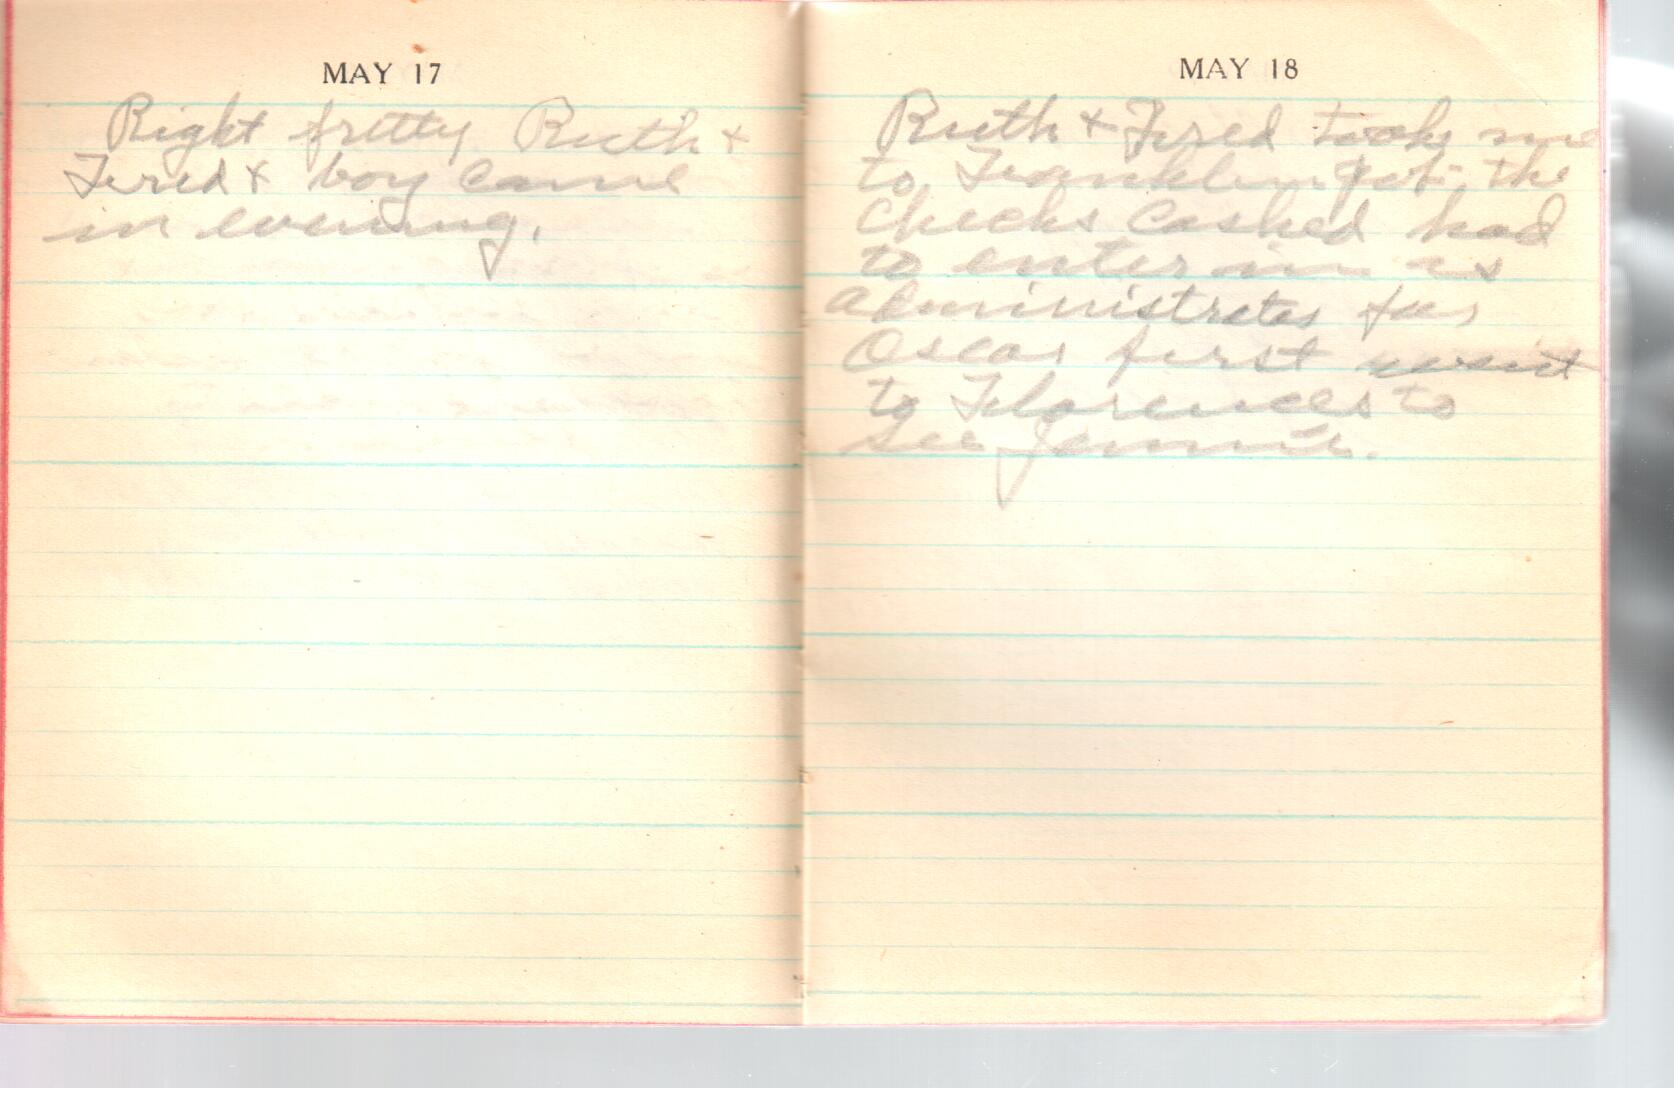 MAY 17
Right pretty Ruth +
Fred + boy came
in evening.
MAY 18
Ruth + Fred took me
to Franklin got the
checks cashed had
to enter in as
administrater for
Oscar first went
to Florences to
see Jennie.